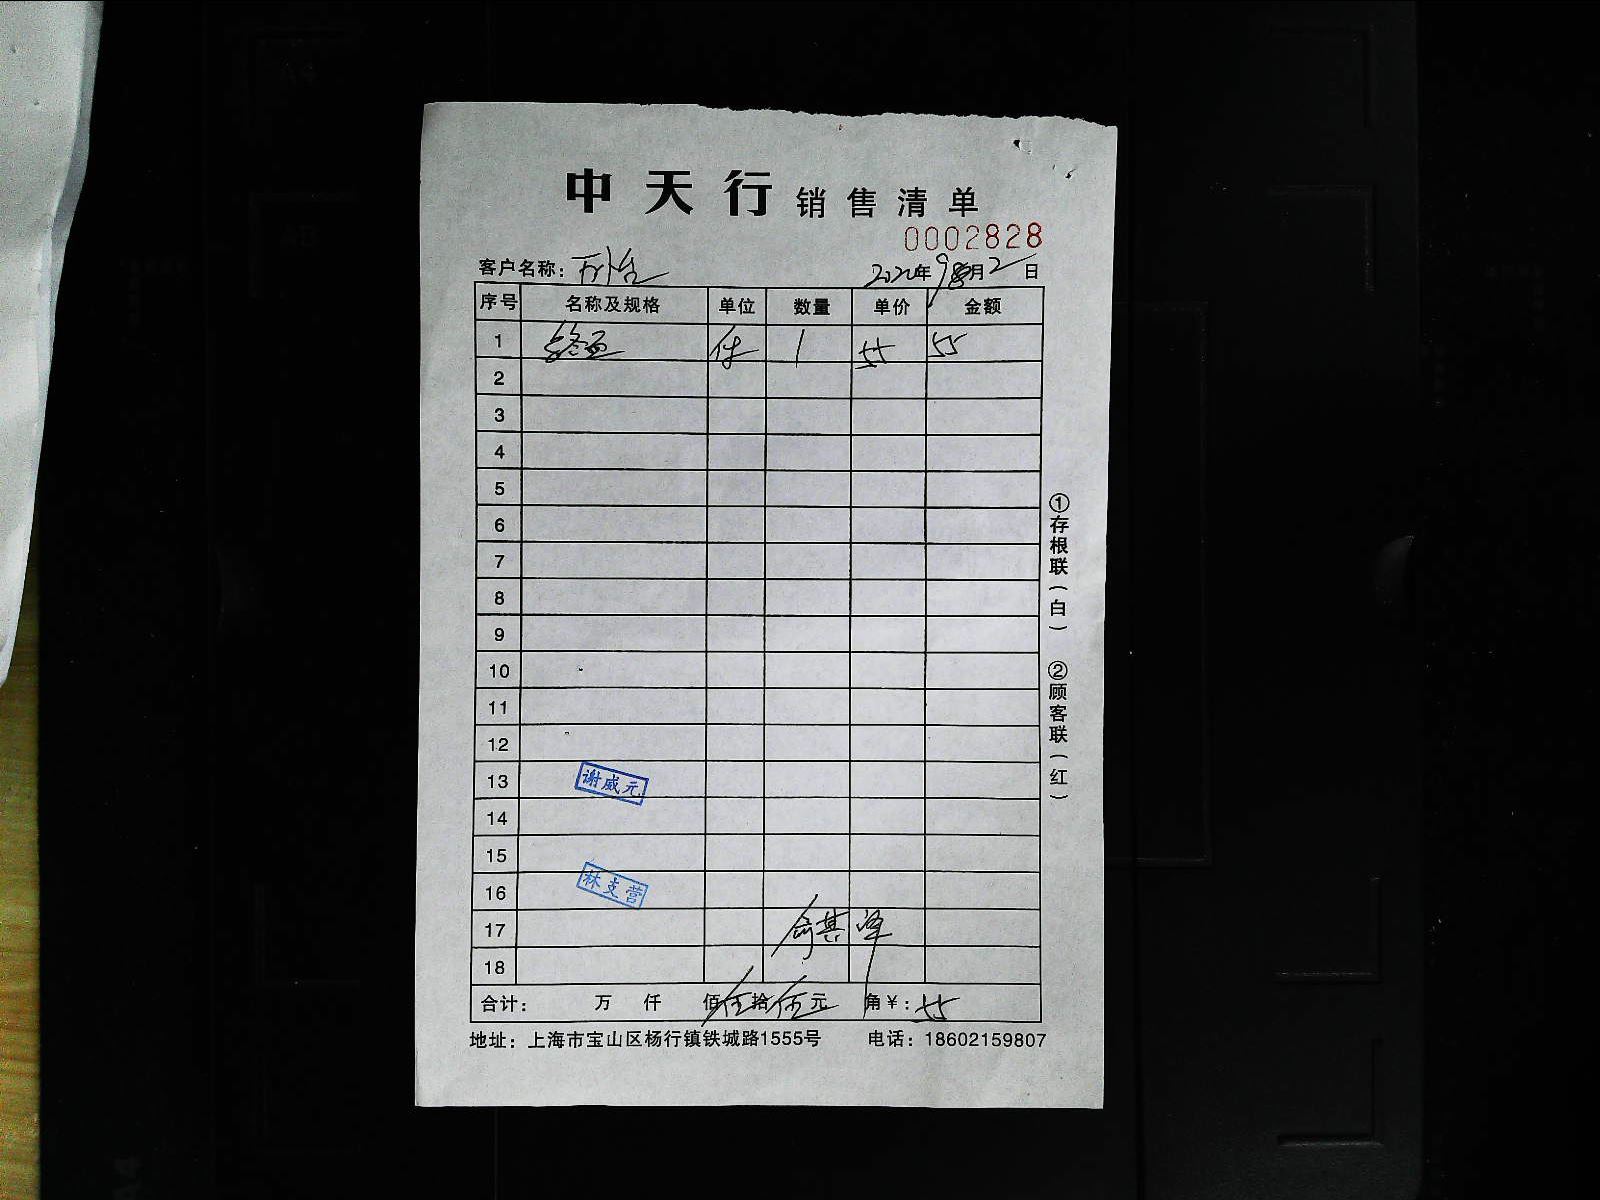 中天行 销售清单
0002828
客户名称：
2020年9月2日
序号 名称及规格 单位 数量 单价 金额
1 件 1 55 55
2
3
4
5
6
7
8
9
10
11
12
13 谢威元
14
15
16 林支营
17 俞其泽
18
合计： 万 仟 佰伍拾伍元 角￥：55
地址：上海市宝山区杨行镇铁城路1555号 电话：18602159807
①存根联（白） ②顾客联（红）